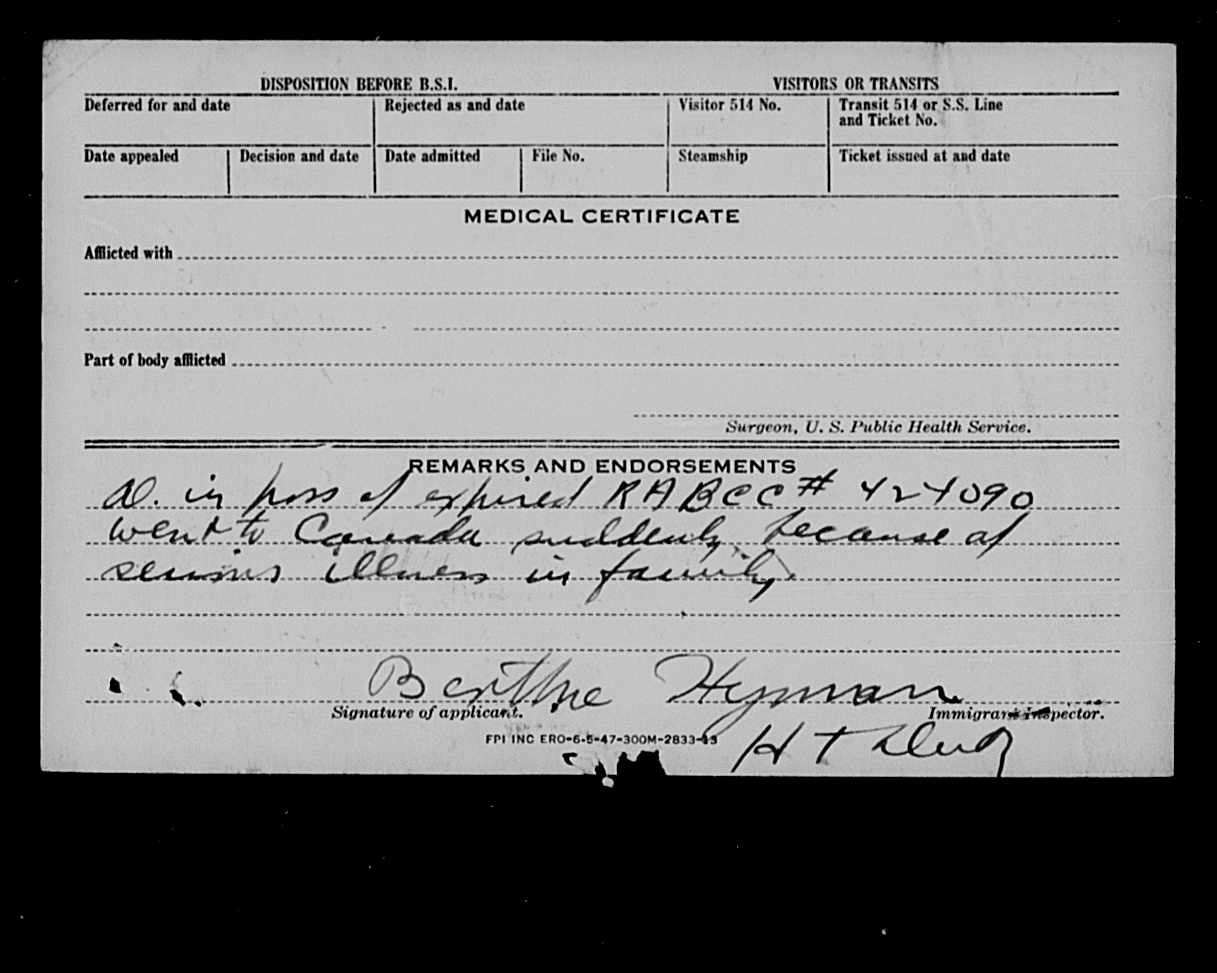 DISPOSITION BEFORE B.S.I. VISITORS OR TRANSITS
Deferred for and date Rejected as and date Visitor 514 No. Transit 514 or S.S. Line and Ticket No.
Date appealed Decision and date Date admitted File No. Steamship Ticket issued at and date
MEDICAL CERTIFICATE
Afflicted with
Part of body afflicted
Surgeon, U. S. Public Health Service.
REMARKS AND ENDORSEMENTS
in poss of expired RABCC# 424090
went to Canada suddenly because of
serious illness in family.
Berthe Hyman
Signature of applicant. Immigrant Inspector.
FPI INC ERO-6-5-47-300M-2833-43
H T